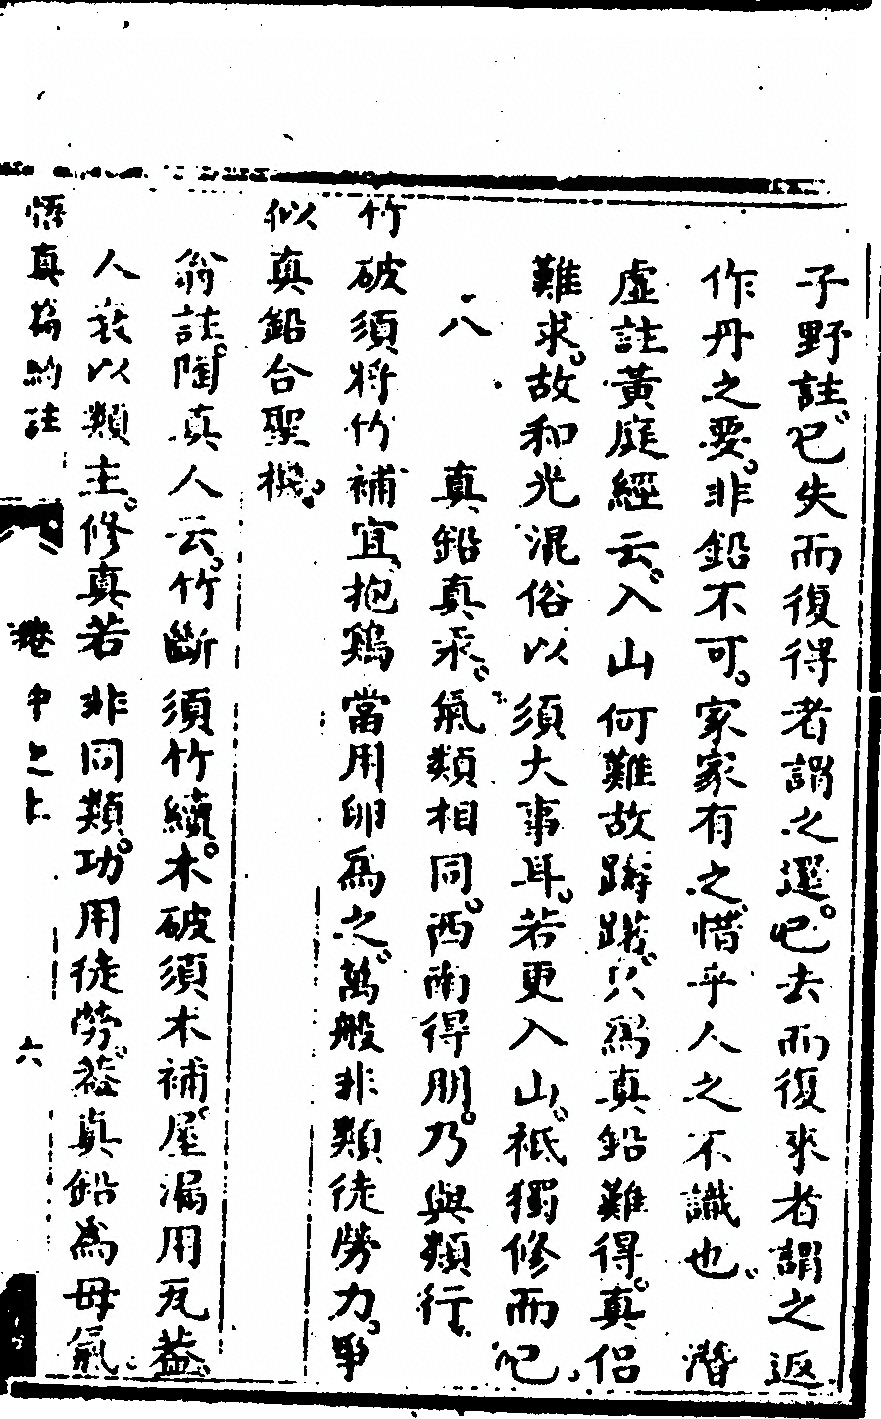 子野註已失而復得者謂之還。已去而復來者謂之返
作丹之要。非鉛不可。家家有之惜乎人之不識也。潛
虛註黃庭經云。入山何難故躊躇。只為真鉛難得。真侶
難求。故和光混俗以須大事耳。若更入山。祗獨修而已
八 真鉛真汞。氣類相同。西南得朋。乃與類行
竹破須將竹補宜抱鷄當用卵為之。萬般非類徒勞力。爭
似真鉛合聖機。
翁註陶真人云。竹斷須竹續。木破須木補屋漏用瓦蓋
人衰以類主。修真若非同類。功用徒勞。蓋真鉛為母氣
悟真篇約註 卷中之上 六